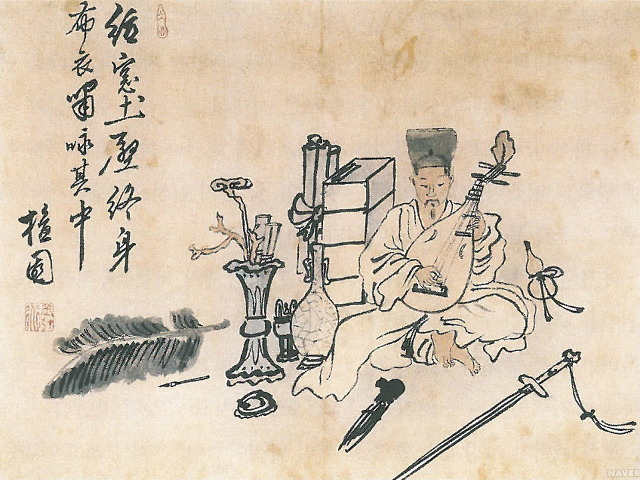 紙窓土壁終身
布衣嘯咏其中
檀園
NAVER